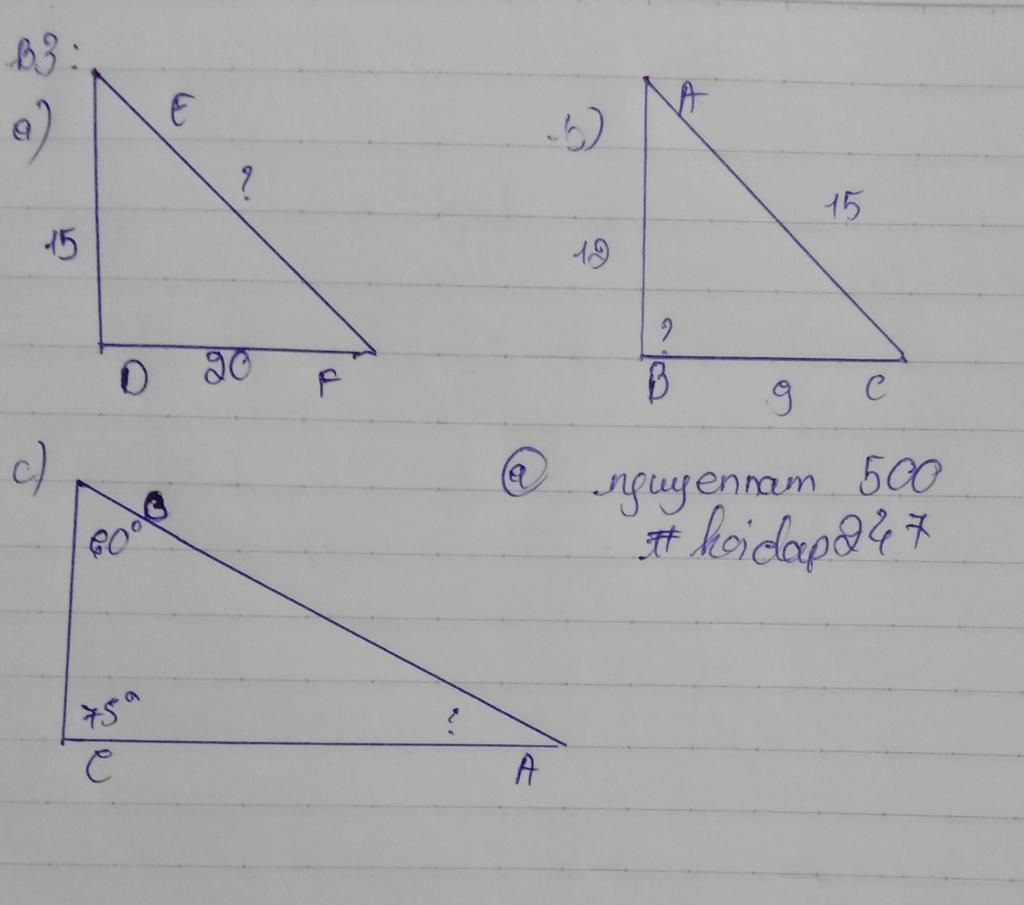 B3:
a)
E
?
15
D
20
F
b)
A
15
12
?
B
9
C
c)
B
60°
75°
?
C
A
@ nguyennam 500
# hoidap247